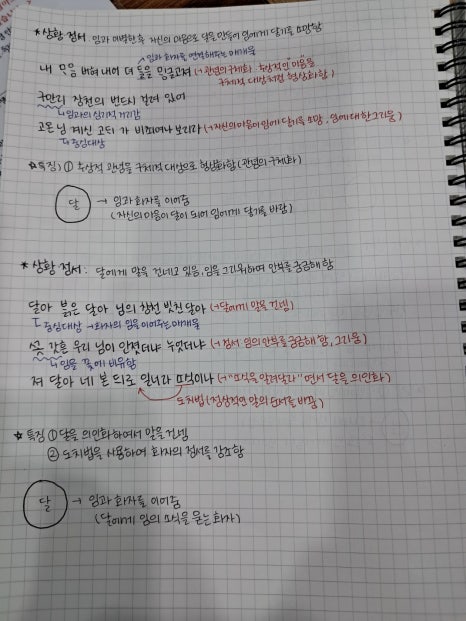 *상황 정서 : 임과 이별한 후 자신의 마음으로 달을 만들어 임에게 닿기를 소망함
→임과 화자를 연결해주는 매개물
내 마음 버혀 내여 더 달을 밍글고져 (→관념의 구체화 : 추상적인 "마음"을
구체적 대상처럼 형상화함)
구만리 장천의 번드시 걸려 있어
↳임과의 심리적 거리감
고은 님 계신 고디 가 비최여나 보리라 (→자신의 마음이 임에 닿기를 소망, 임에 대한 그리움)
↳중심대상
☆특징) ① 추상적 관념을 구체적 대상으로 형상화함 (관념의 구체화)
달 → 임과 화자를 이어줌
(자신의 마음이 달이 되어 임에게 닿기를 바람)
*상황 정서 : 달에게 말을 건네고 있음, 임을 그리워하며 안부를 궁금해함
달아 붉은 달아 님의 창전 빗친 달아 (→달에게 말을 건넴)
중심대상 →화자와 임을 이어주는 매개물
곳 갓흔 우리 님이 안졋더냐 누엇더냐 (→정서 임의 안부를 궁금해 함, 그리움)
↳임을 꽃에 비유함
져 달아 네 본 되로 일너라 소식이나 (→"소식을 알려달라"면서 달을 의인화)
도치법 (정상적인 말의 순서를 바꿈)
☆특징 ① 달을 의인화하여서 말을 건넴
② 도치법을 사용하여 화자의 정서를 강조함
달 → 임과 화자를 이어줌
(달에게 임의 소식을 묻는 화자)